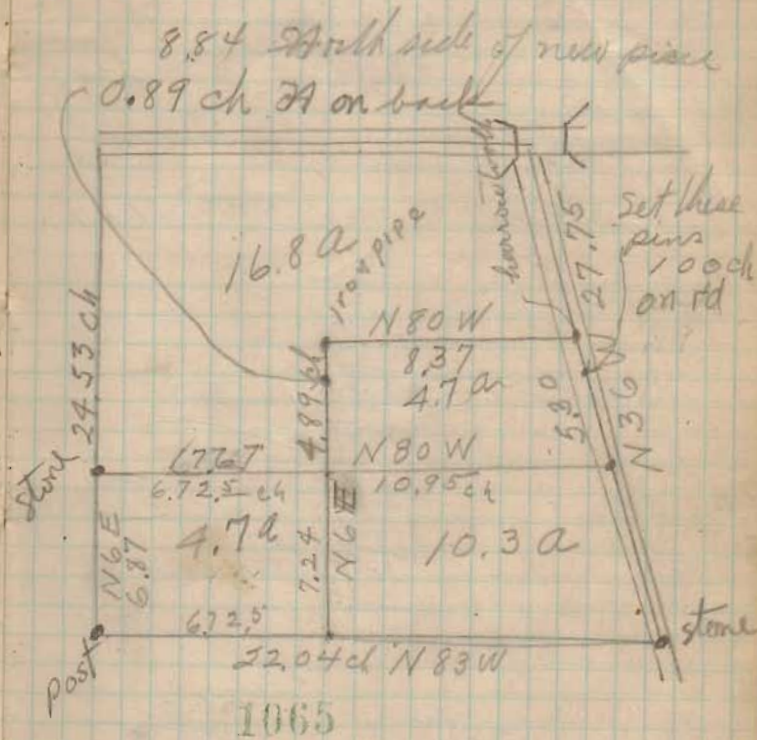 8.84 North side of new piece
0.89 ch N on back
harrow tooth
27.75
Set these
pins
100 ch
on rd
16.8 a
iron pipe
N 80 W
8.37
4.7 a
24.53 ch
4.89 ch
5.30
N 36 W
stone
17.67
6.72.5 ch
N 80 W
10.95 ch
N 6 E
6.87
4.7 a
7.24
N 6 E
10.3 a
6.72.5
stone
post
22.04 ch N 83 W
1065